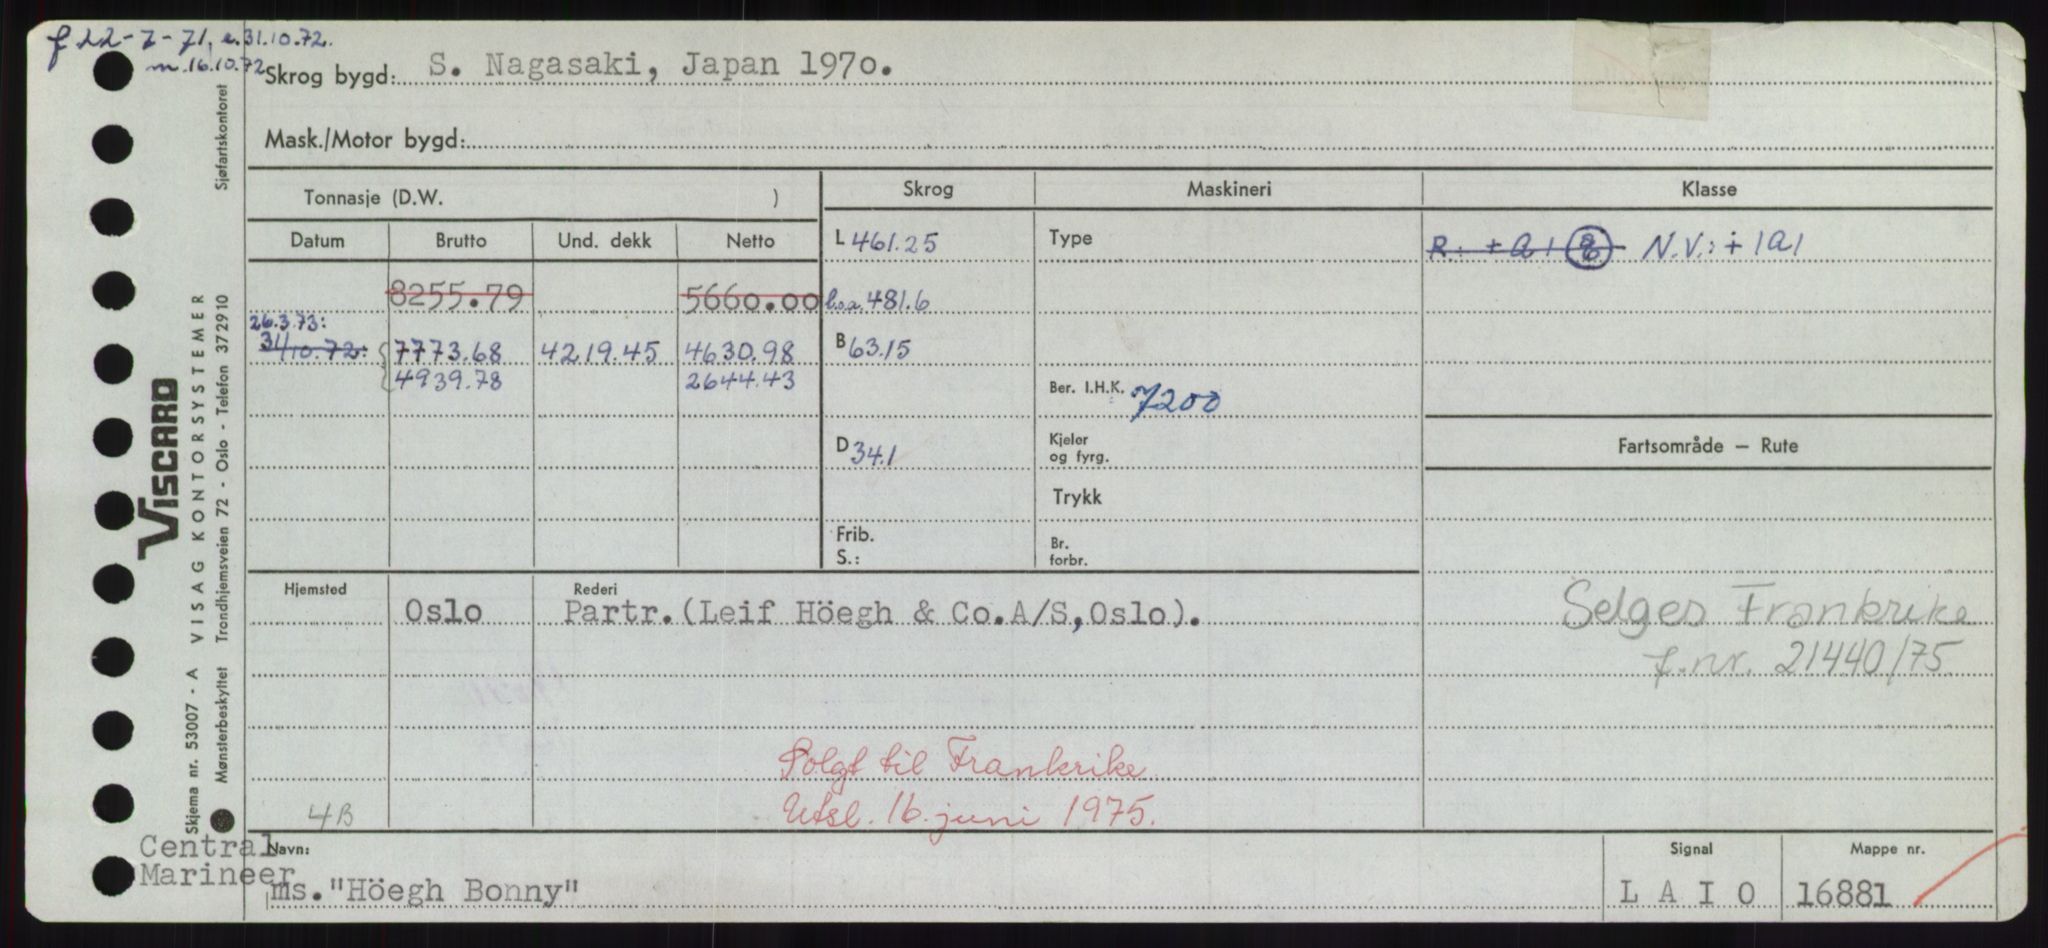 f 22-7-71, e. 31.10.72.
m. 16.10.72
Skrog bygd: S. Nagasaki, Japan 1970.
Mask./Motor bygd:
Tonnasje (D.W. )
Skrog Maskineri Klasse
Datum Brutto Und. dekk Netto
L 461.25 Type R: +A1 N.V.: +1A1
8255.79 5660.00 l.o.a. 481.6
26.3.73:
31/10.72: 7773.68 4219.45 4630.98 B 63.15
4939.78 2644.43 Ber. I.H.K. 7200
D 34.1 Kjeler og fyrg. Fartsområde — Rute
Trykk
Frib. S.: Br. forbr.
Hjemsted Rederi
Oslo Partr.(Leif Höegh & Co.A/S,Oslo).
Selges Frankrike
f.nr. 21440/75.
Solgt til Frankrike
Utsl. 16. juni 1975.
4B
Central
Marineer
Navn: Signal Mappe nr.
ms."Höegh Bonny" L A I O 16881
VISCARD
Skjema nr. 53007 - A VISAG KONTORSYSTEMER
Mønsterbeskyttet Trondhjemsveien 72 - Oslo - Telefon 372910 Sjøfartskontoret